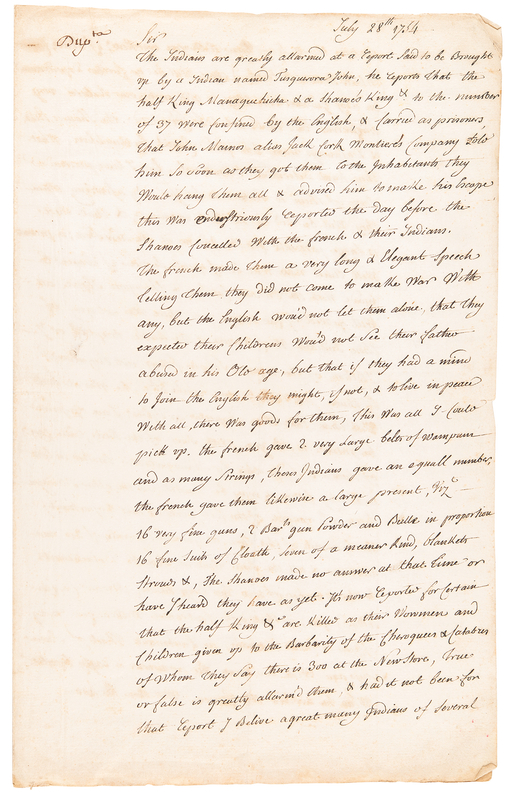 July 28th 1754
Dupta
Sir
The Indians are greatly allarmed at a report Said to be Brought
up by a Indian named Tusquerora John, he reports That the
half King Manaquehicha & a Shanoes King &c to the number
of 37 Were Confined by the English, & Carried as prisoners
that John Mainor alias Jack Cork Montiere's Company told
him So Soon as they got them to the Inhabitants they
Would hang Them all & advised him to make his Escape
this Was Industriously reported the day before the
Shanoes Councelled With the french & their Indians.
The french made Them a very long & Elegant Speech
telling Them they did not come to make War With
any, but the English wou'd not let them alone, that they
expected their Childrens Wou'd not See their father
abused in his Old age, but that if they had a mind
to Join the English they might, if not, & to live in peace
With all, there Was goods for them, This Was all I Could
pick up. the french gave 2 very Large belts of wampum
and as many Strings, these Indians gave an equall number,
the french gave them likewise a large present, Vizt
16 very fine guns, 2 Barls gun Powder and Bullets in proportion
16 fine Suits of Cloath, Seven of a meaner kind, blankets
Strouds &, The Shanoes made no answer at that time or
have I heard they have as yet. It's now reported for Certain
that the half King &c are Killed as their Vowmen and
Children given up to the Barbarity of the Cheroquees & Catabres
of Whom They Say there is 300 at the New Store, True
or false is greatly allarm'd them, & had it not been for
that report I Belive a great many Indians of Several